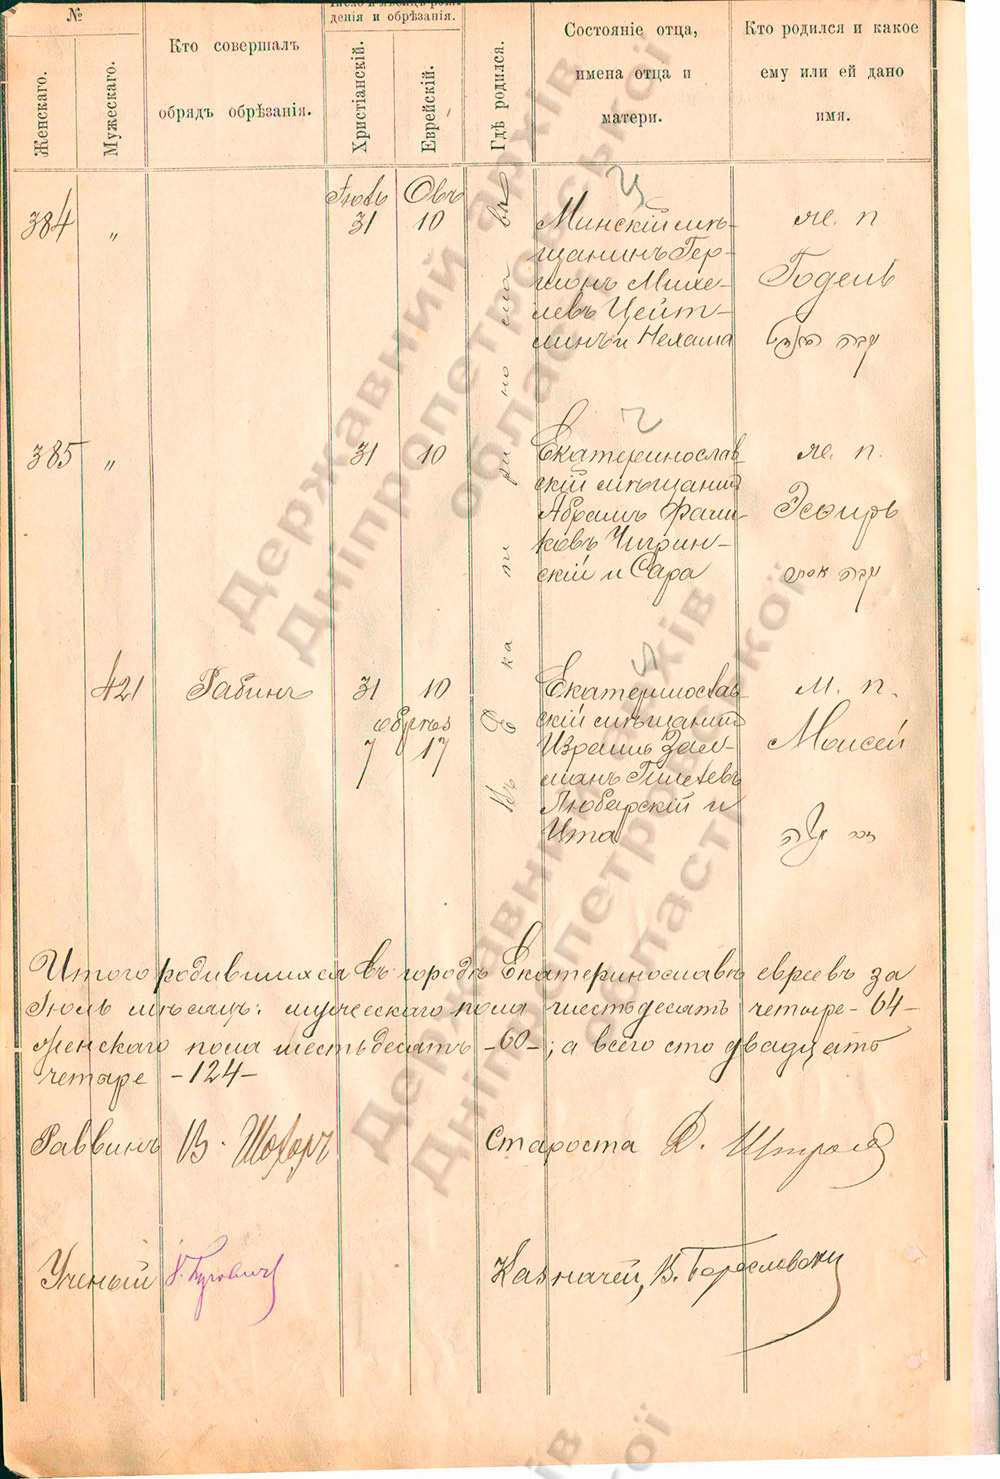 №
Женскаго.
Мужескаго.
Кто совершалъ
обрядъ обрѣзанія.
дения и обрѣзанія.
Христіанскій.
Еврейскій.
Гдѣ родился.
Состояніе отца,
имена отца и
матери.
Кто родился и какое
ему или ей дано
имя.
Въ Екатеринославѣ
Ц
384 „ Іюль 31 Овъ 10
Минскій мѣ-
щанинъ Гер-
шонъ Михе-
левъ Цейт-
линъ и Нехама
же. п.
Годель
Ч
385 „ 31 10
Екатеринослав-
скій мѣщанинъ
Абрамъ
ковъ Чигрин-
скій и Сара
же. п.
Эсѳирь
421 Рабинъ 31 10
обрѣз
7 17
Екатеринослав-
скій мѣщанинъ
Израиль Зал-
манъ
Любарскій и
Ита
м. п.
Моисей
Итого родившихся въ городѣ Екатеринославѣ евреевъ за
Іюль мѣсяцъ: мужескаго пола шестьдесятъ четыре -64-
женскаго пола шестьдесятъ -60-; а всего сто двадцать
четыре -124-
Раввинъ В. Шохоръ
Староста
Ученый
Казначей, В.
Державний архів
Дніпропетровської
області
Державний архів
Дніпропетровської
області